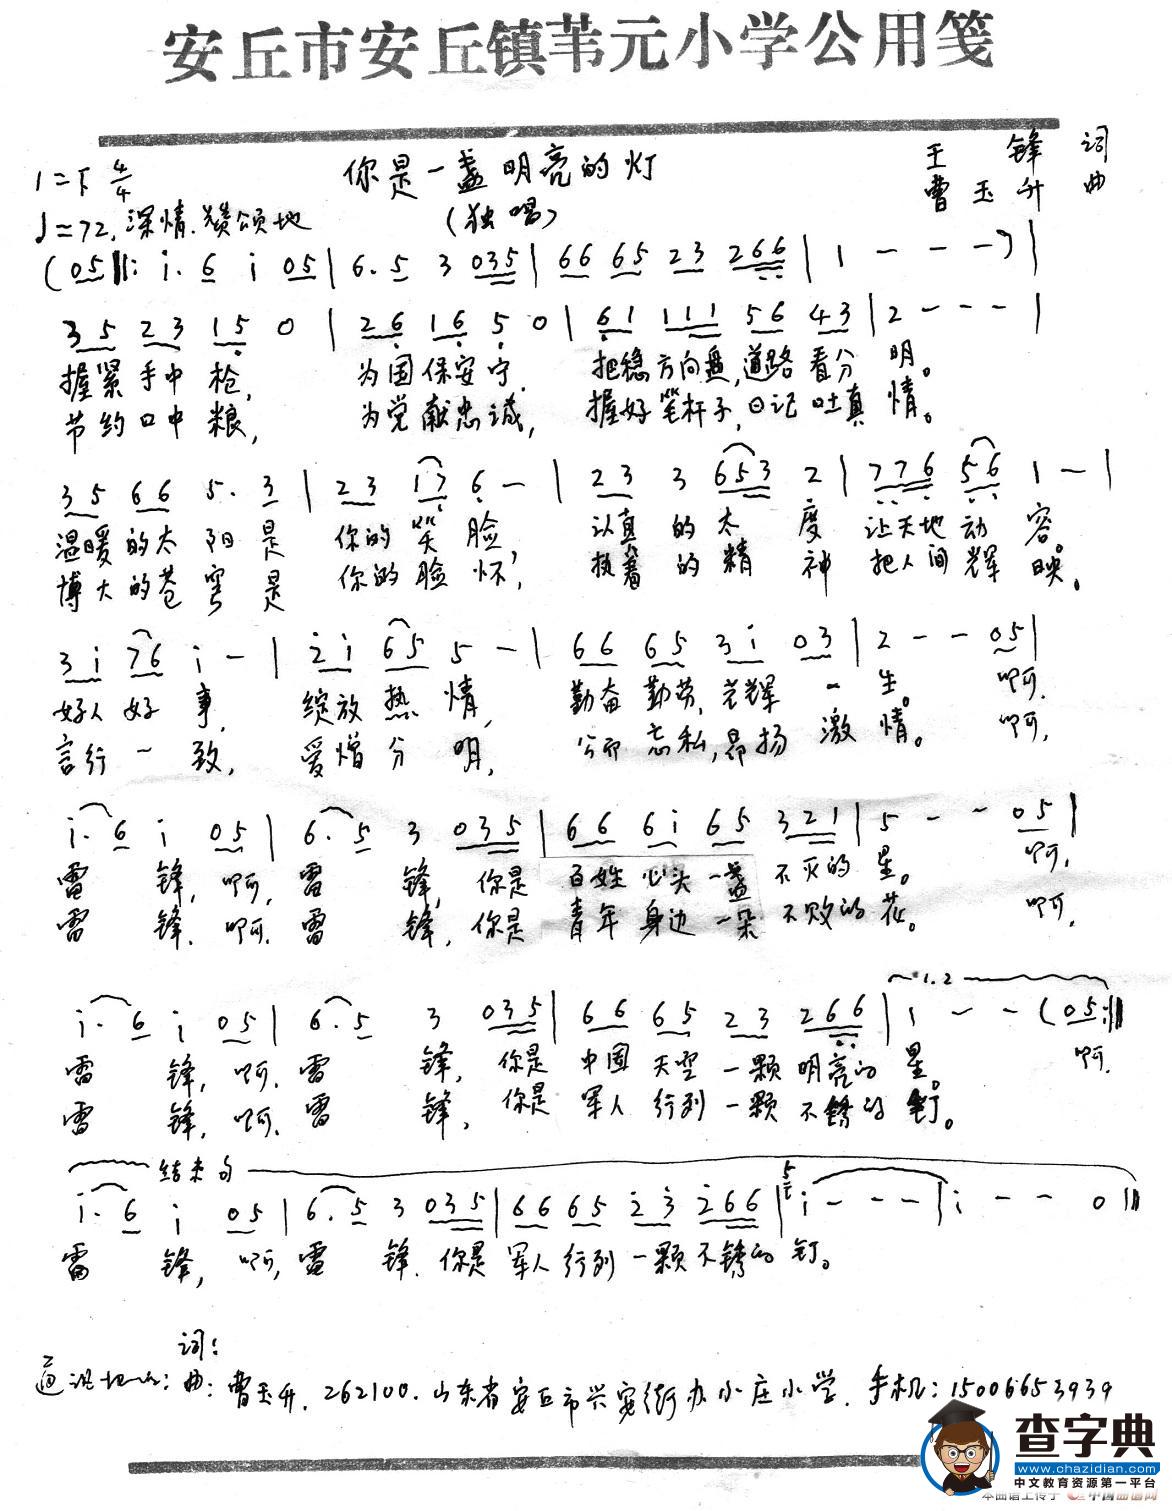 安丘市安丘镇苇元小学公用笺
1=F 4/4 你是一盏明亮的灯 王锋 词
♩=72. 深情.赞颂地 (独唱) 曹玉升 曲
(05‖: i. 6 i 05 | 6. 5 3 035 | 66 65 23 266 | 1 - - -) |
35 23 15 0 | 26 16 5 0 | 61 111 56 43 | 2 - - - |
握紧手中枪, 为国保安宁. 把稳方向盘,道路看分明。
节约口中粮, 为党献忠诚, 握好笔杆子,日记吐真情。
35 66 5. 3 | 23 17 6 - | 23 3 653 2 | 776 56 1 - |
温暖的太阳是你的笑脸, 认真的态度让天地动容。
博大的苍穹是你的脸怀, 执着的精神把人间辉映。
3i 76 i - | 2i 65 5 - | 66 65 3i 03 | 2 - - 05 |
好人好事, 绽放热情, 勤奋勤劳,光辉一生。 啊,
言行一致, 爱憎分明, 公而忘私,昂扬激情。 啊,
i. 6 i 05 | 6. 5 3 035 | 66 6i 65 321 | 5 - - 05 |
雷锋,啊,雷锋,你是百姓心头一盏不灭的星。 啊,
雷锋.啊.雷锋,你是青年身边一朵不败的花。 啊,
1.2
i. 6 i 05 | 6. 5 3 035 | 66 65 23 266 | 1 - - (05:‖
雷锋,啊.雷锋,你是中国天空一颗明亮的星。 啊.
雷锋,啊.雷锋,你是军人行列一颗不锈的钉。
结束句
i. 6 i 05 | 6. 5 3 035 | 66 65 2 3 266 | 5 i - - - | i - - 0 ‖
雷锋,啊,雷锋.你是军人行列一颗不锈的钉。
词:
通讯地址: 曲:曹玉升. 262100. 山东省安丘市兴安街办小庄小学. 手机:15006653939
查字典
www.chazidian.com
中文教育资源第一平台
本曲谱上传于 中国曲谱网